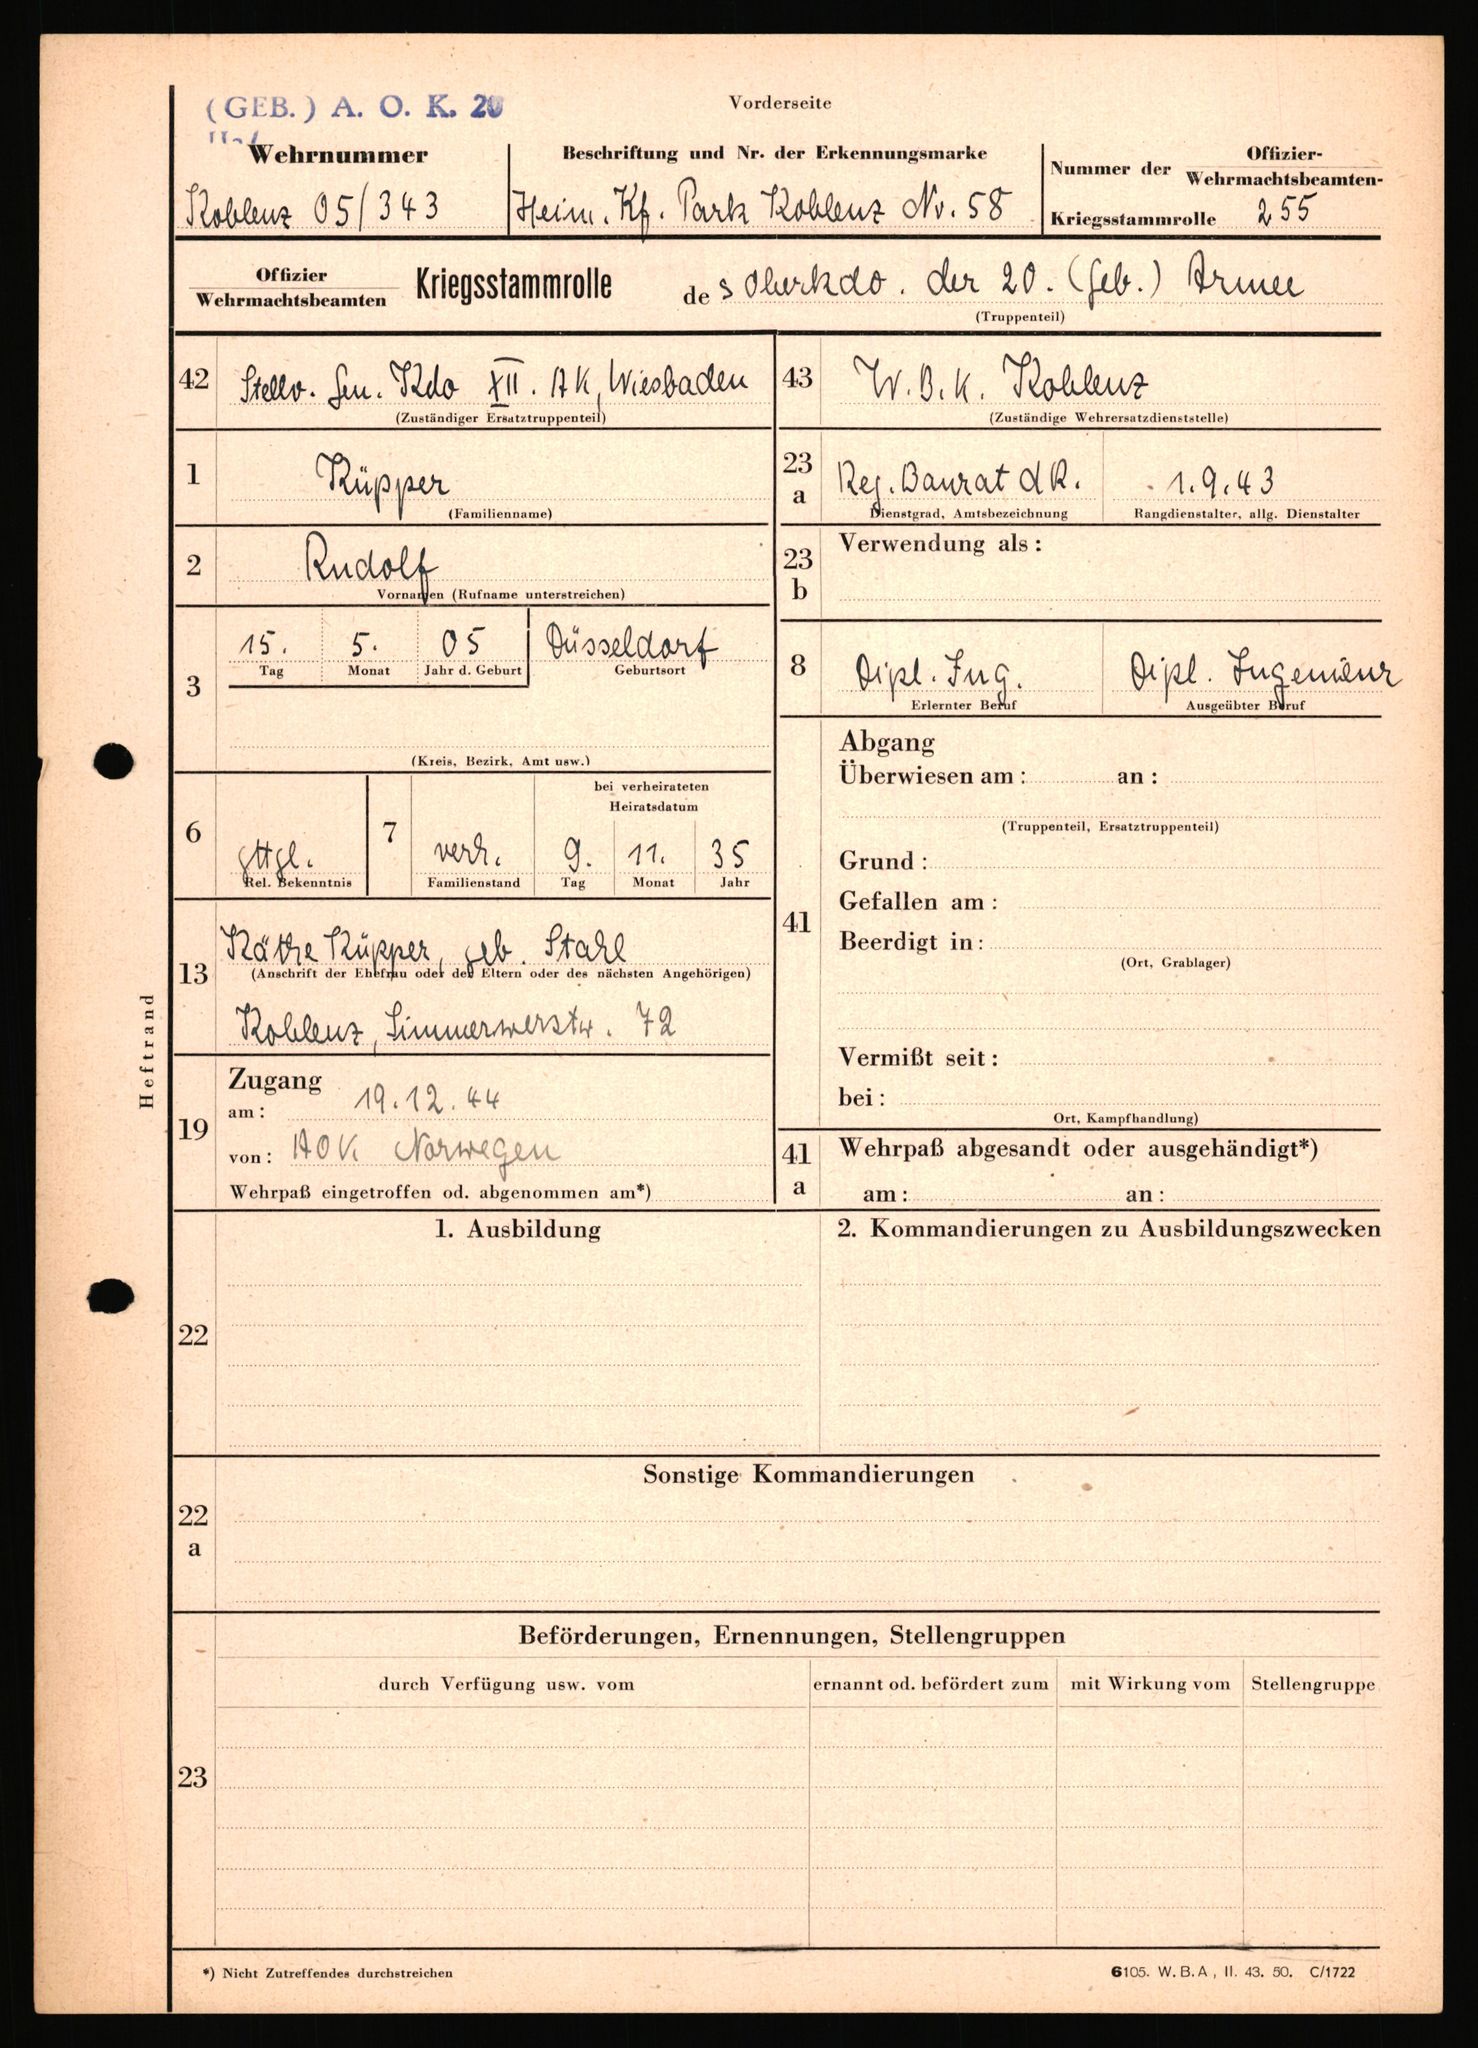 (GEB.) A. O. K. 20
Vorderseite
Wehrnummer
Koblenz 05/343
Beschriftung und Nr. der Erkennungsmarke
Heim. Kf. Park Koblenz Nr. 58
Nummer der Offizier-
Wehrmachtsbeamten-
Kriegsstammrolle 255
Offizier
Wehrmachtsbeamten
Kriegsstammrolle des Oberkdo. der 20. (Geb.) Armee
(Truppenteil)
42 Stellv. Gen. Kdo XII. AK, Wiesbaden
(Zuständiger Ersatztruppenteil)
43 W. B. K. Koblenz
(Zuständige Wehrersatzdienststelle)
1 Küpper
(Familienname)
23 a Reg. Baurat d R. 1.9.43
Dienstgrad, Amtsbezeichnung Rangdienstalter, allg. Dienstalter
2 Rudolf
Vornamen (Rufname unterstreichen)
23 b Verwendung als:
3 15. 5. 05 Düsseldorf
Tag Monat Jahr d. Geburt Geburtsort
(Kreis, Bezirk, Amt usw.)
8 Dipl. Ing. Dipl. Ingenieur
Erlernter Beruf Ausgeübter Beruf
6 gttgl.
Rel. Bekenntnis
7 bei verheirateten
Heiratsdatum
verh. 9. 11. 35
Familienstand Tag Monat Jahr
13 Käthe Küpper, geb. Stahl
(Anschrift der Ehefrau oder der Eltern oder des nächsten Angehörigen)
Koblenz, 72
19 Zugang
am: 19.12.44
von: AOK Norwegen
Wehrpaß eingetroffen od. abgenommen am*)
41 Abgang
Überwiesen am: an:
(Truppenteil, Ersatztruppenteil)
Grund:
Gefallen am:
Beerdigt in:
(Ort, Grablager)
Vermißt seit:
bei:
Ort, Kampfhandlung)
41 a Wehrpaß abgesandt oder ausgehändigt*)
am: an:
22 1. Ausbildung
2. Kommandierungen zu Ausbildungszwecken
22 a Sonstige Kommandierungen
23 Beförderungen, Ernennungen, Stellengruppen
durch Verfügung usw. vom ernannt od. befördert zum mit Wirkung vom Stellengruppe
Heftrand
*) Nicht Zutreffendes durchstreichen
6105. W.B.A, II. 43. 50. C/1722